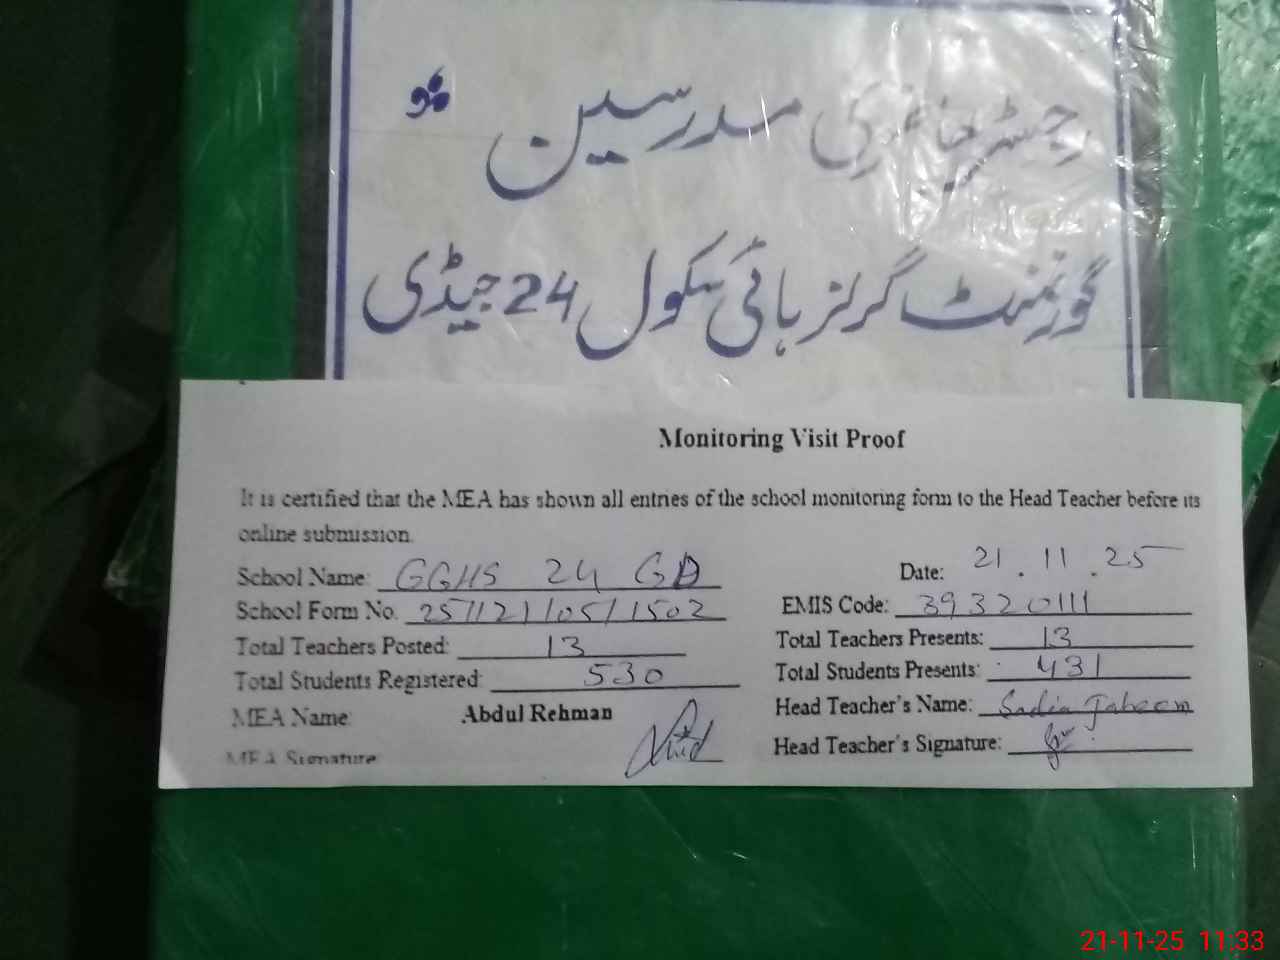 رجسٹر حاضری مدرسین
گورنمنٹ گرلز ہائی سکول 24 جیڈی
Monitoring Visit Proof
It is certified that the MEA has shown all entries of the school monitoring form to the Head Teacher before its
online submission.
School Name: GGHS 24 GD Date: 21.11.25
School Form No. 25/121/05/1502 EMIS Code: 39320111
Total Teachers Posted: 13 Total Teachers Presents: 13
Total Students Registered: 530 Total Students Presents: 431
MEA Name: Abdul Rehman Head Teacher's Name: Sadia
MEA Signature Head Teacher's Signature:
21-11-25 11:33